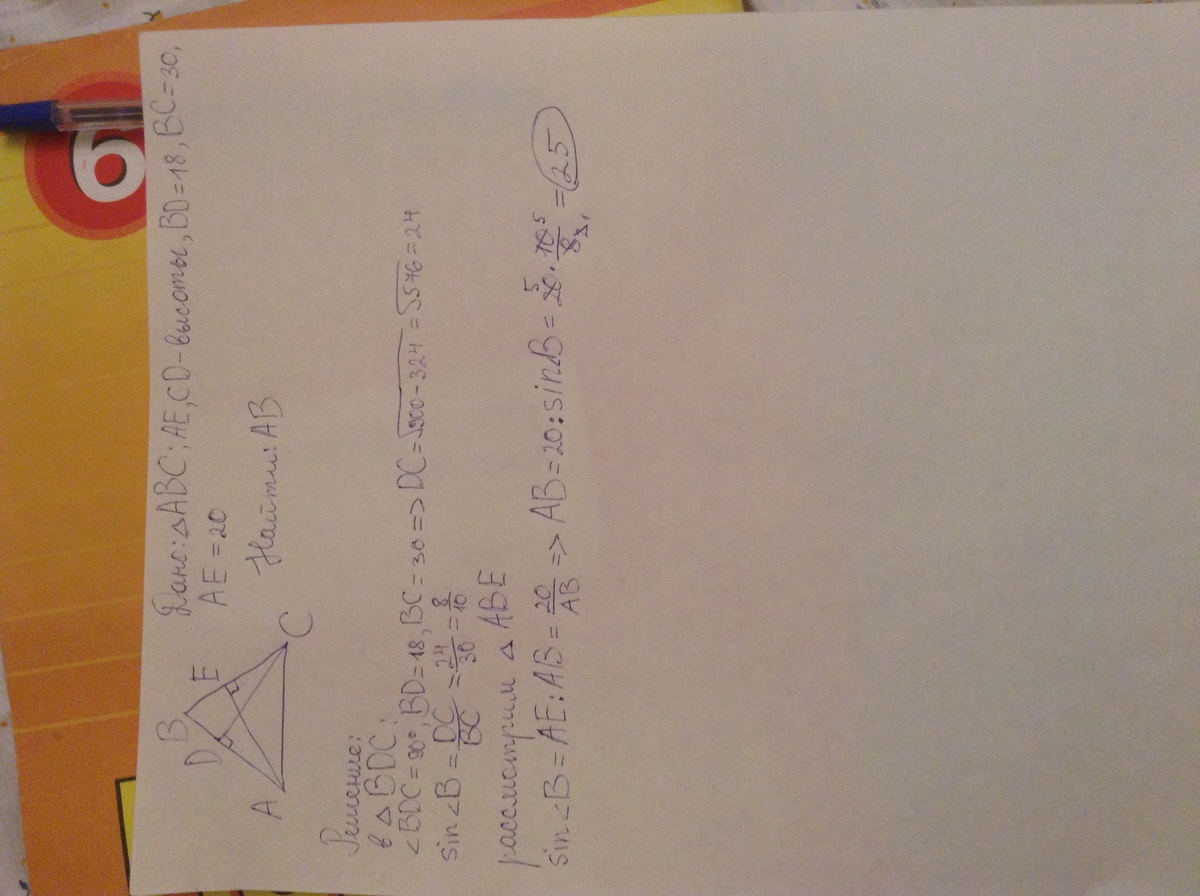 6
Дано: △ABC; AE, CD - высоты, BD = 18, BC = 30,
AE = 20
Найти: AB
B
D
E
A
C
Решение:
в △ BDC:
∠BDC = 90°, BD = 18, BC = 30 => DC = √900 - 324 = √576 = 24
sin ∠B = DC/BC = 24/30 = 8/10
рассмотрим △ ABE
sin ∠B = AE : AB = 20/AB => AB = 20 : sin∠B = 20 5 · 10 5/8 2 1 = 25